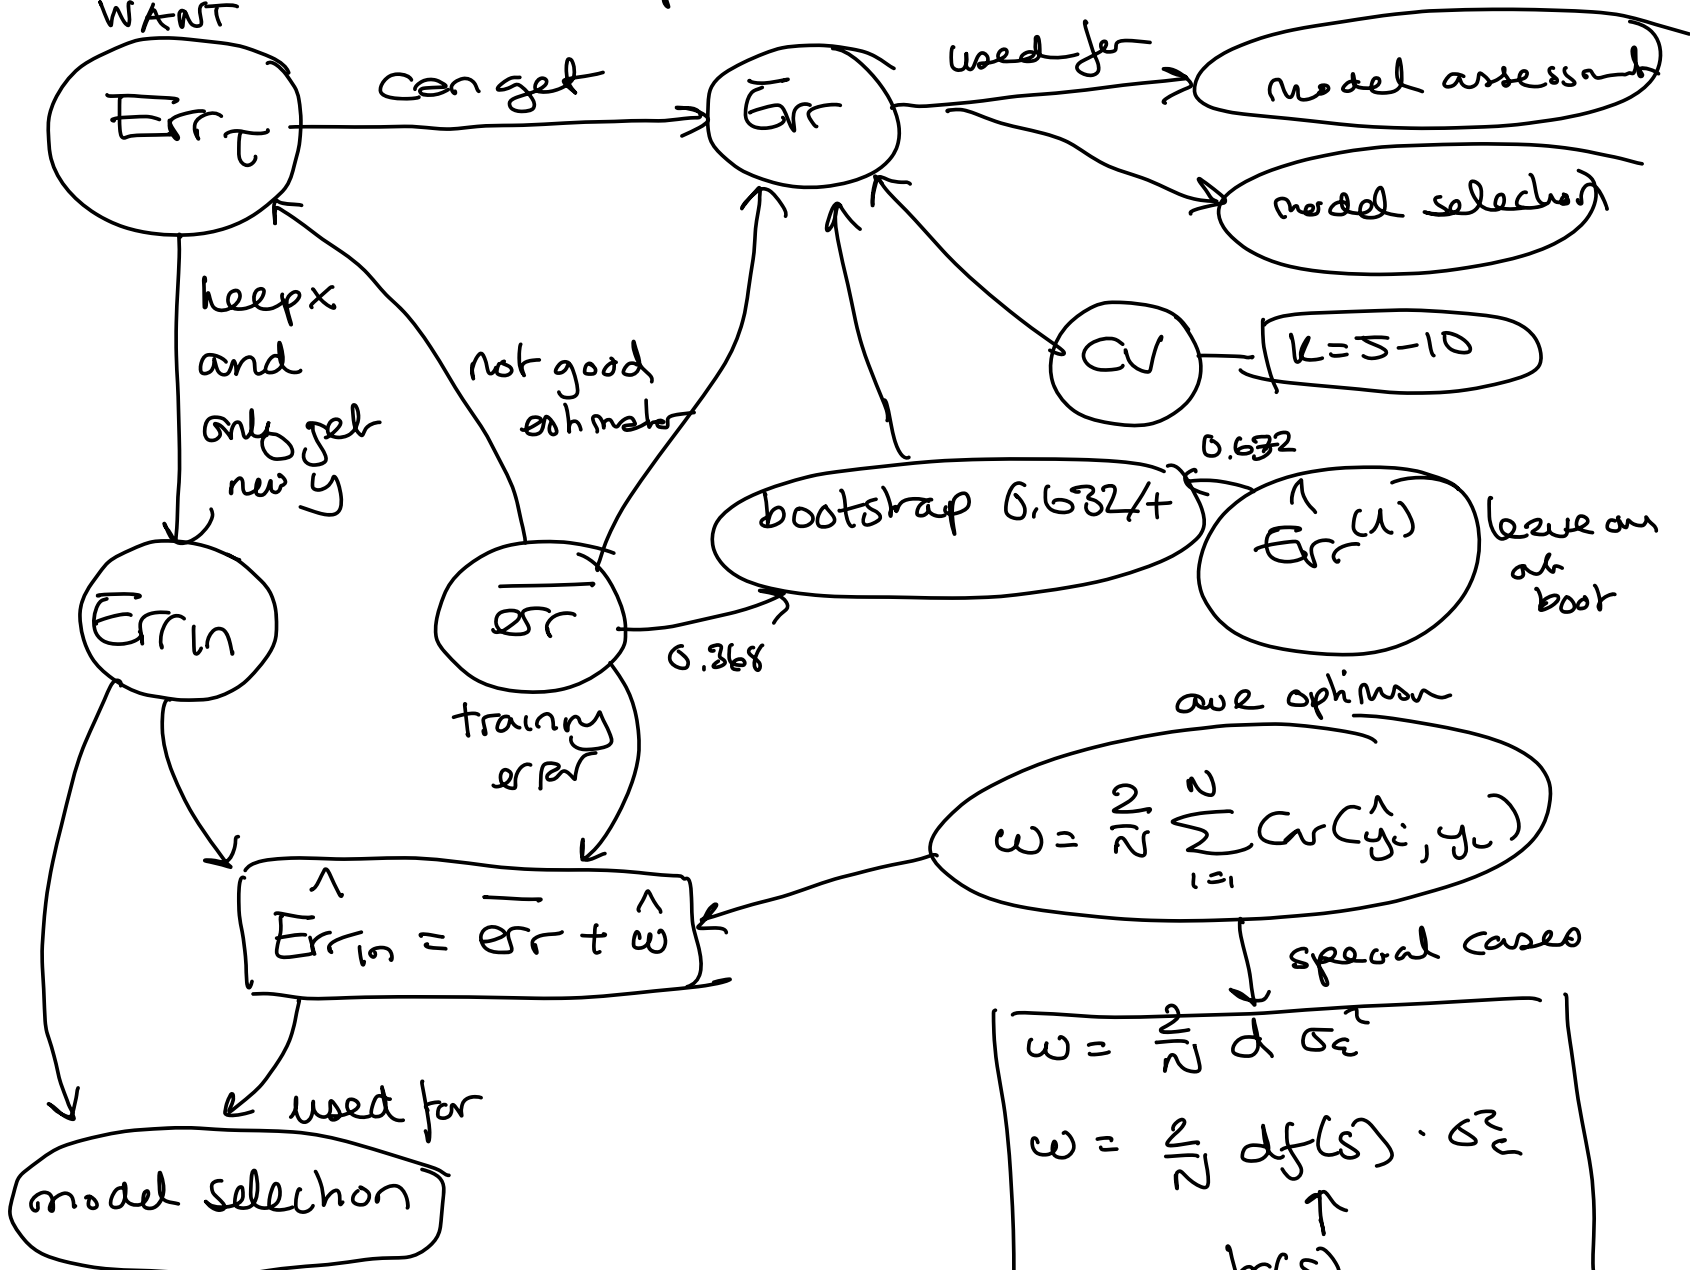 WANT
Err_τ
can get
Err
used for
model assessment
model selection
keep x
and
only get
new y
not good
estimator
CV
K=5-10
0.632
bootstrap 0.632/+
Êrr^(1)
leave one
boot
Err_in
err̅
0.368
training
error
ave optimism
ω = 2/N Σ_{i=1}^{N} Cov(ŷ_i, y_i)
Êrr_in = err̅ + ω̂
special cases
ω = 2/N d σ_ε²
ω = 2/N df(S) · σ_ε²
used for
model selection